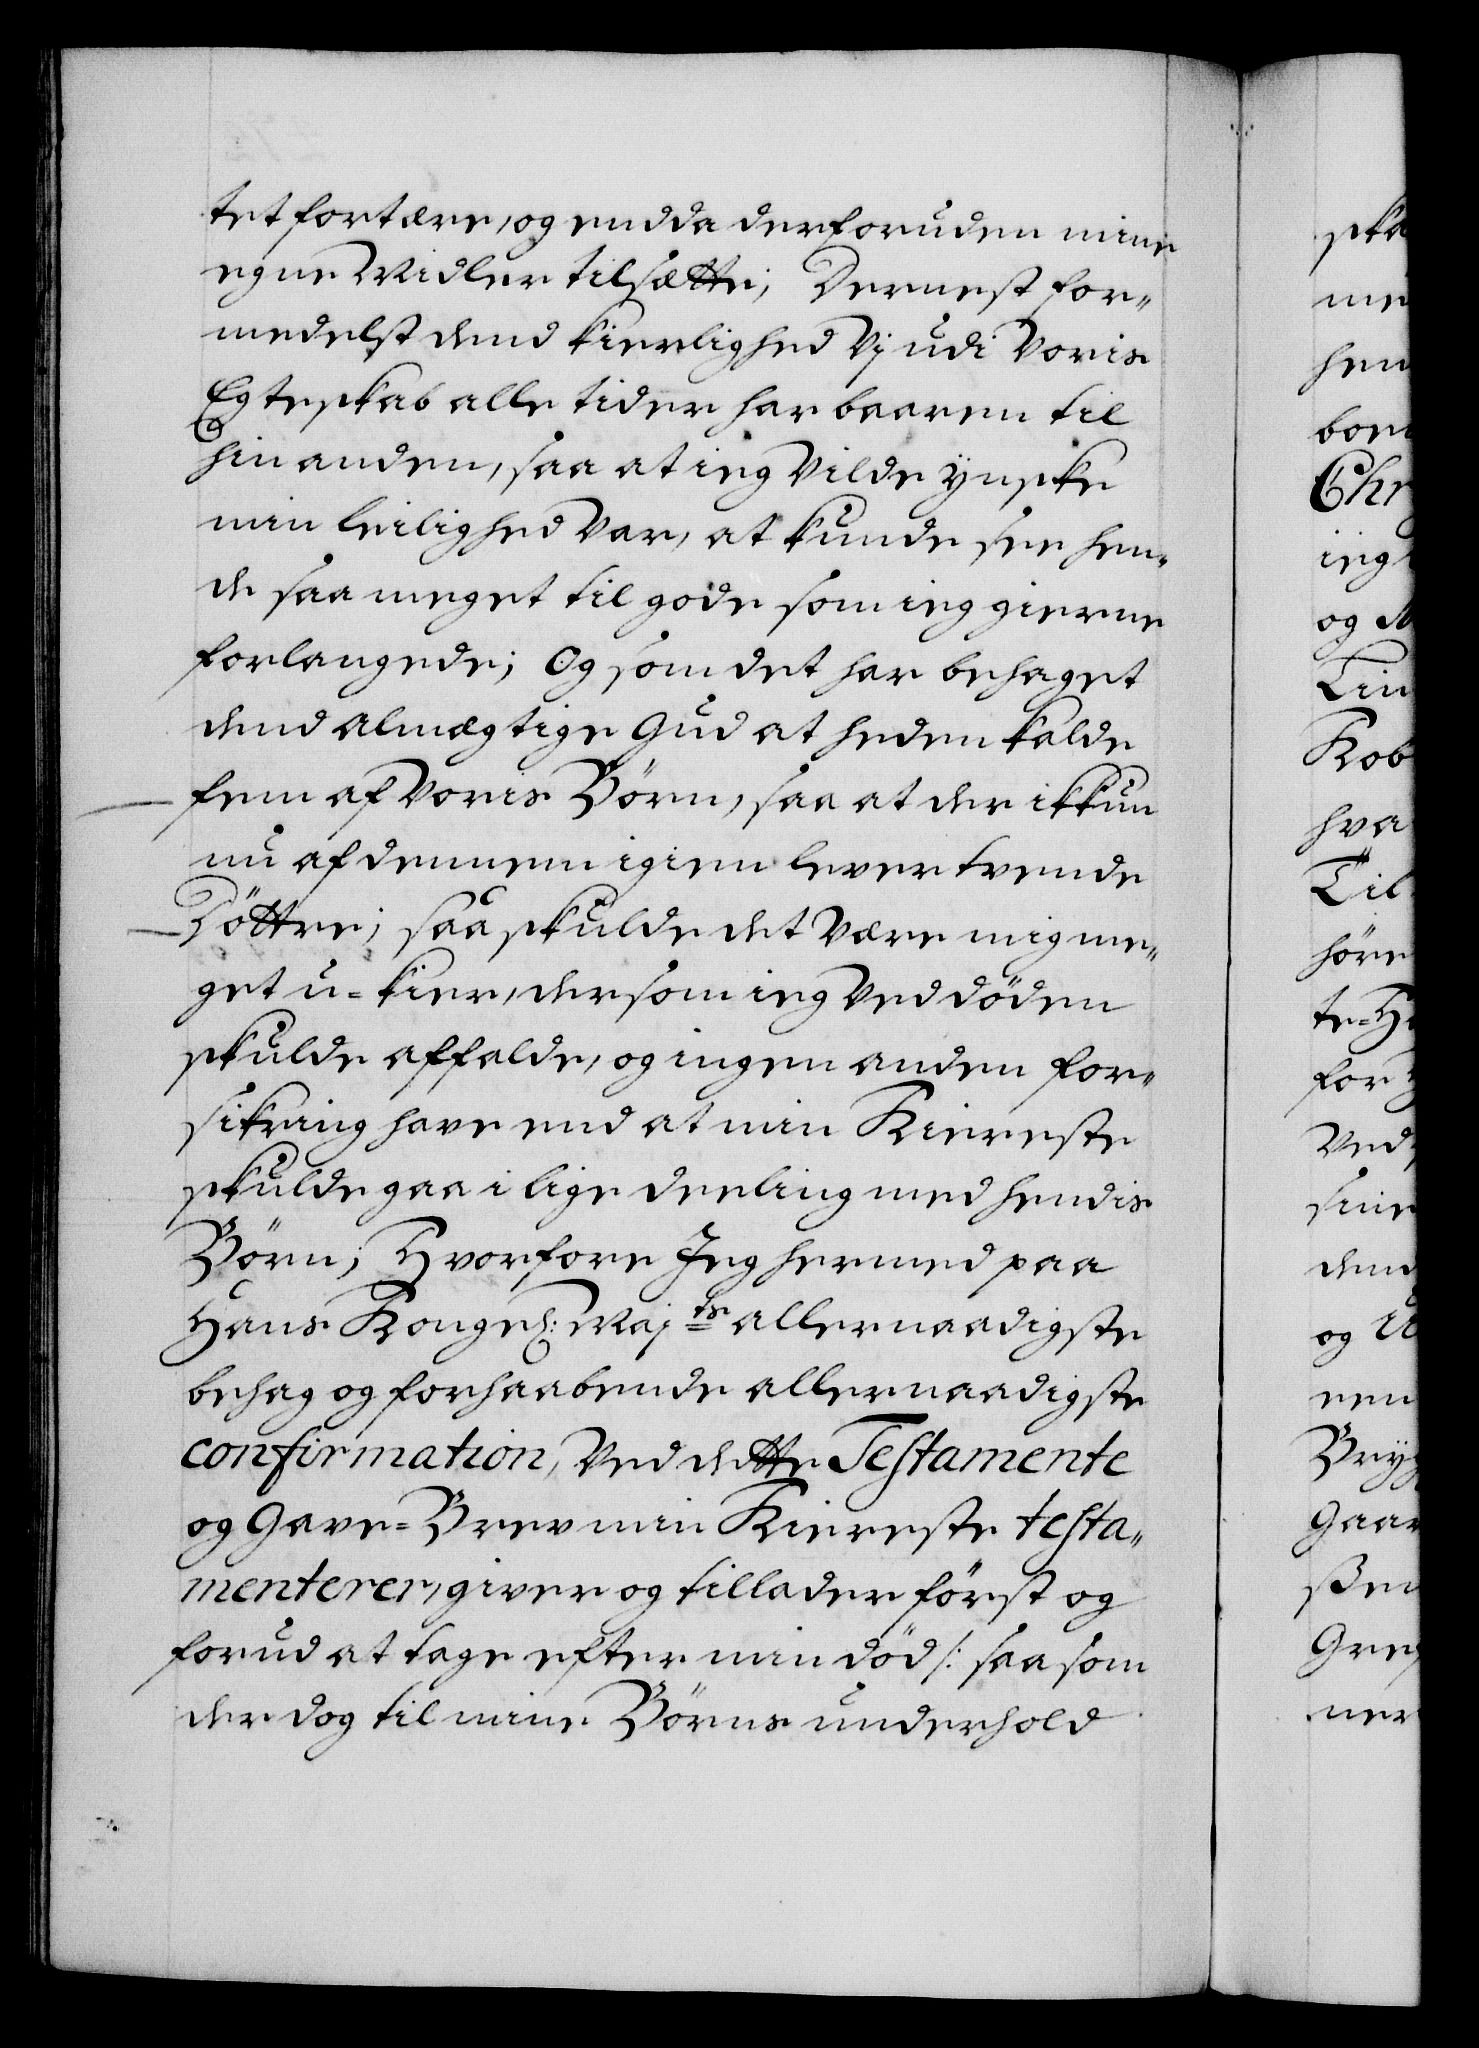 tet fortære, og endda derforuden mine
egne Midler tilsætte; Dernest for„
medelst dend kierlighed Vj udi Voris
Egteskab alle tider har baaren til
hinanden, saa at ieg Vilde ÿnske
min leilighed Var, at kunde see hen„
de saa meget til gode som ieg gierne
forlangede; Og som det har behaget
dend Almægtige Gud at heden kalde
fem af Voris Börn, saa at der ikkun
nu af dennem igien lever tvende
Döttre; saa skulde det Være mig me„
get u=kier, dersom ieg Ved döden
skulde affalde, og ingen anden for„
sikring have end at min Kiereste
skulde gaa i lige deeling med hendis
Börn; Hvorfore Jeg hermed paa
Hans Kongel: Majts allernaadigste
behag og forhaabende allernaadigste
confirmation, Ved dette Testamente
og Gave=Brev min Kiereste testa„
menterer, giver og tillader först og
forud at tage efter min död /: saasom
der dog til mine Börns underhold
ska
me
hen
bor
Chr
ieg
og
Lin
Kob
hva
Til
höre
te=H
for
Ved
sine
dend
og
een
Bryg
Gaar
ßen
Greg
ner